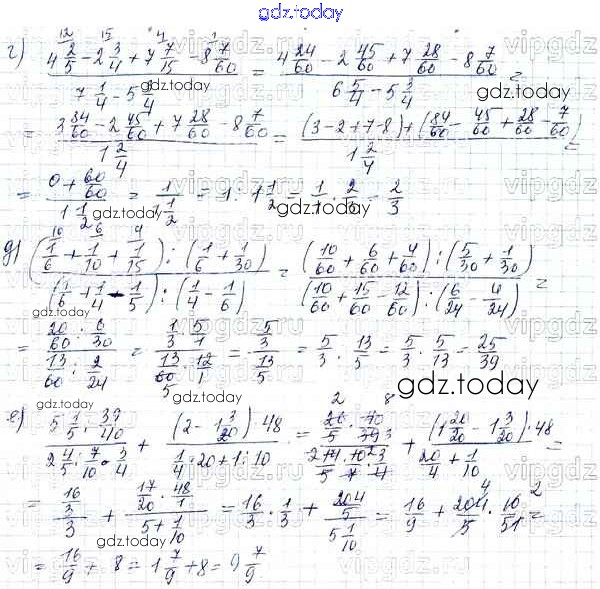 gdz.today
г) (4 2/5 - 2 3/4 + 7 7/15 - 8 7/60) / (7 1/4 - 5 3/4) = (4 24/60 - 2 45/60 + 7 28/60 - 8 7/60) / (6 5/4 - 5 3/4) =
= (3 84/60 - 2 45/60 + 7 28/60 - 8 7/60) / (1 2/4) = ((3-2+7-8) + (84/60 - 45/60 + 28/60 - 7/60)) / (1 2/4) =
= (0 + 60/60) / (1 1/2) = 1 / (1 1/2) = 1 : 1 1/2 = 1/1 · 2/3 = 2/3
д) ((1/6 + 1/10 + 1/15) : (1/6 + 1/30)) / ((1/6 + 1/4 - 1/5) : (1/4 - 1/6)) = ((10/60 + 6/60 + 4/60) : (5/30 + 1/30)) / ((10/60 + 15/60 - 12/60) : (6/24 - 4/24)) =
= (20/60 : 6/30) / (13/60 : 2/24) = (1/3 · 5/1) / (13/60 · 12/1) = (5/3) / (13/5) = 5/3 : 13/5 = 5/3 · 5/13 = 25/39
gdz.today
е) (5 1/5 : 39/40) / (2 4/5 : 7/10 · 3/4) + ((2 - 1 3/20) · 48) / (1/4 · 20 + 1 : 10) = (26/5 · 40/39) / (14/5 · 10/7 · 3/4) + ((1 20/20 - 1 3/20) · 48) / (20/4 + 1/10) =
= (16/3) / 3 + (17/20 · 48/1) / (5 + 1/10) = 16/3 · 1/3 + (204/5) / (5 1/10) = 16/9 + 204/5 · 10/51 =
= 16/9 + 8 = 1 7/9 + 8 = 9 7/9